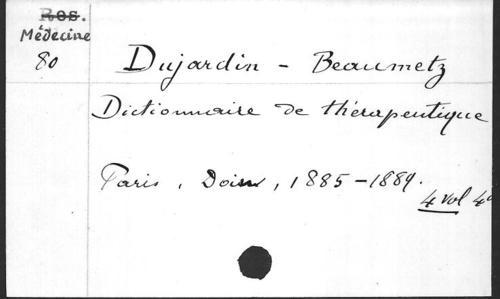 Res.
Médecine
80
Dujardin - Beaumetz
Dictionnaire de thérapeutique
Paris, Doin, 1885-1889.
4 vol 4°